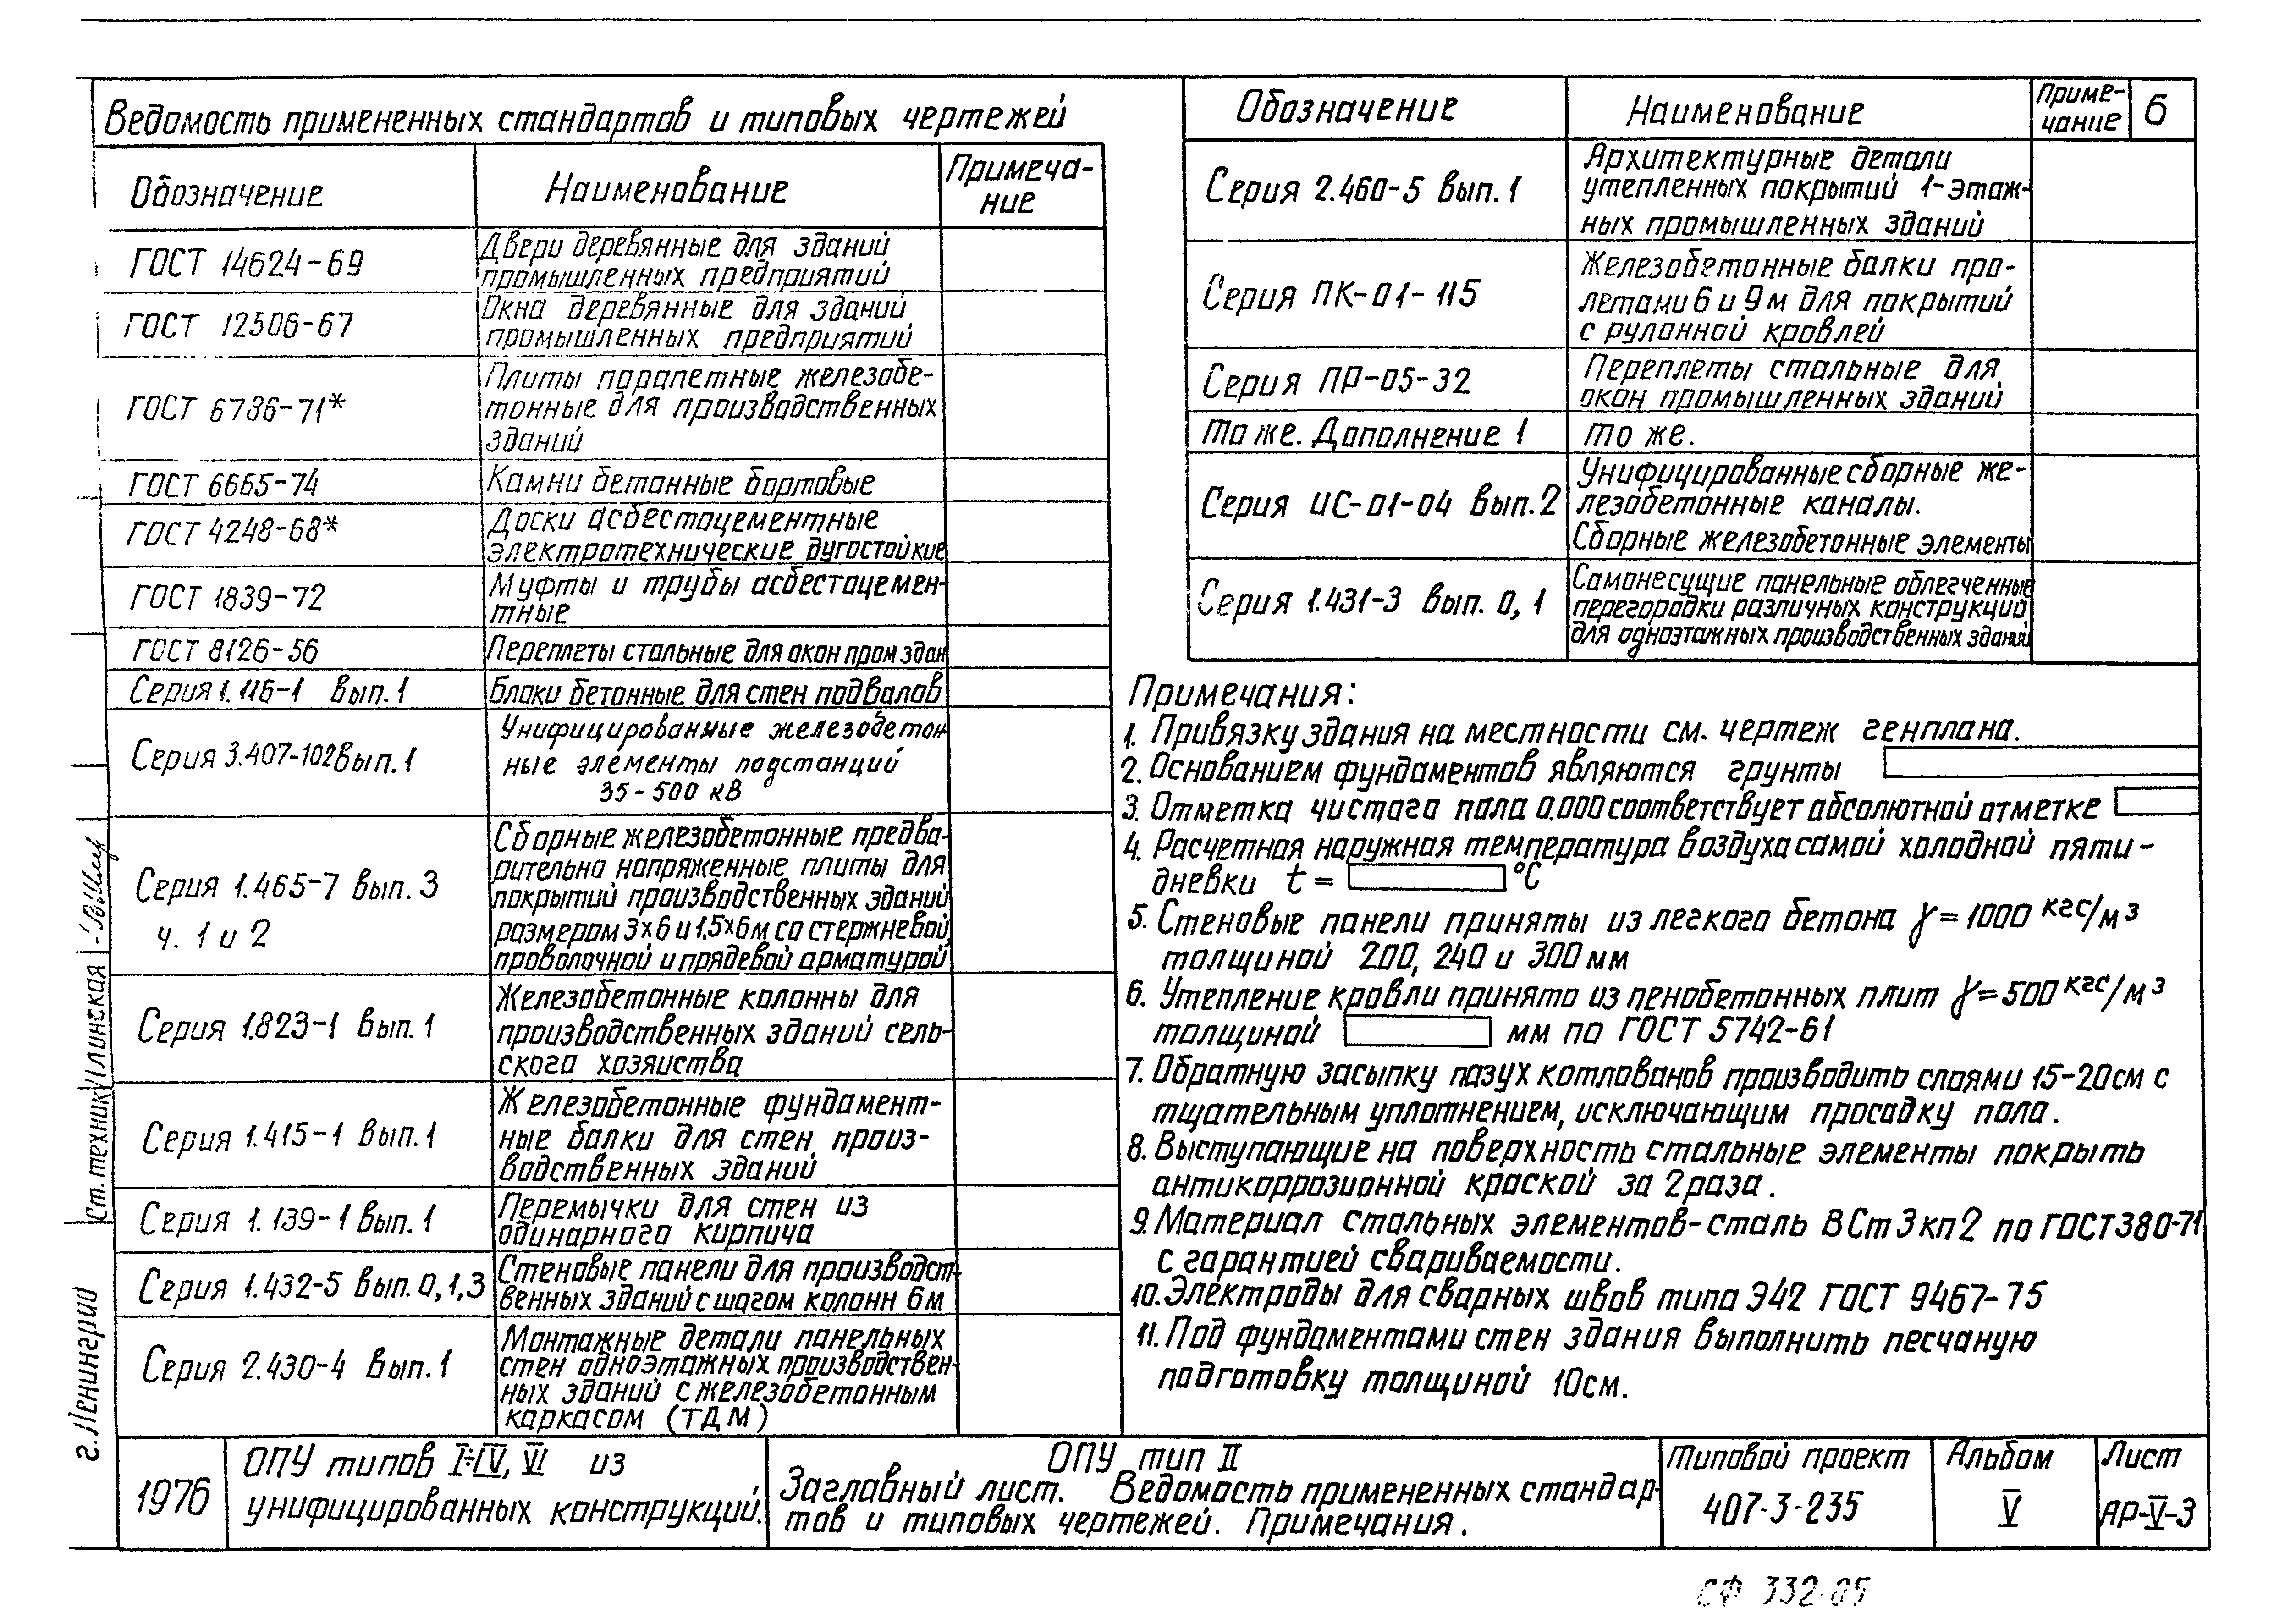 Ведомость примененных стандартов и типовых чертежей
Обозначение
Наименование
Примеча-
ние
ГОСТ 14624-69
Двери деревянные для зданий
промышленных предприятий
ГОСТ 12506-67
Окна деревянные для зданий
промышленных предприятий
ГОСТ 6736-71*
Плиты парапетные железобе-
тонные для производственных
зданий
ГОСТ 6665-74
Камни бетонные бортовые
ГОСТ 4248-68*
Доски асбестоцементные
электротехнические дугостойкие
ГОСТ 1839-72
Муфты и трубы асбестоцемен-
тные
ГОСТ 8126-56
Переплеты стальные для окон пром здан
Серия 1.116-1 вып.1
Блоки бетонные для стен подвалов
Серия 3.407-102 вып.1
Унифицированные железобетон
ные элементы подстанций
35-500 кВ
Серия 1.465-7 вып.3
ч. 1 и 2
Сборные железобетонные предва-
рительно напряженные плиты для
покрытий производственных зданий
размером 3х6 и 1,5х6м со стержневой,
проволочной и прядевой арматурой
Серия 1.823-1 вып.1
Железобетонные колонны для
производственных зданий сель-
ского хозяиства
Серия 1.415-1 вып.1
Железобетонные фундамент-
ные балки для стен произ-
водственных зданий
Серия 1.139-1 вып.1
Перемычки для стен из
одинарного кирпича
Серия 1.432-5 вып.0,1,3
Стеновые панели для производст-
венных зданий с шагом колонн 6м
Серия 2.430-4 вып.1
Монтажные детали панельных
стен одноэтажных производствен-
ных зданий с железобетонным
каркасом (ТДМ)
Обозначение
Наименование
Приме-
чание
6
Серия 2.460-5 вып.1
Архитектурные детали
утепленных покрытий 1-этаж-
ных промышленных зданий
Серия ПК-01-115
Железобетонные балки про-
летами 6 и 9м для покрытий
с рулонной кровлей
Серия ПР-05-32
Переплеты стальные для
окон промышленных зданий
То же. Дополнение 1
То же.
Серия ИС-01-04 вып.2
Унифицированные сборные же-
лезобетонные каналы.
Сборные железобетонные элементы
Серия 1.431-3 вып. 0,1
Самонесущие панельные облегченные
перегородки различных конструкций
для одноэтажных производственных зданий
Примечания:
1. Привязку здания на местности см. чертеж генплана.
2. Основанием фундаментов являются грунты
3. Отметка чистого пола 0.000 соответствует абсолютной отметке
4. Расчетная наружная температура воздуха самой холодной пяти-
дневки t = °С
5. Стеновые панели приняты из легкого бетона γ=1000 кгс/м³
толщиной 200, 240 и 300мм
6. Утепление кровли принято из пенобетонных плит γ=500 кгс/м³
толщиной мм по ГОСТ 5742-61
7. Обратную засыпку пазух котлованов производить слоями 15-20см с
тщательным уплотнением, исключающим просадку пола.
8. Выступающие на поверхность стальные элементы покрыть
антикоррозионной краской за 2 раза.
9. Материал стальных элементов-сталь ВСт3кп2 по ГОСТ 380-71
с гарантией свариваемости.
10. Электроды для сварных швов типа Э42 ГОСТ 9467-75
11. Под фундаментами стен здания выполнить песчаную
подготовку толщиной 10см.
Ст. техник Илинская
г. Ленинград
1976
ОПУ типов I÷IV, VI из
унифицированных конструкций.
ОПУ тип II
Заглавный лист. Ведомость примененных стандар-
тов и типовых чертежей. Примечания.
Типовой проект
407-3-235
Альбом
V
Лист
АР-V-3
СФ 332-05